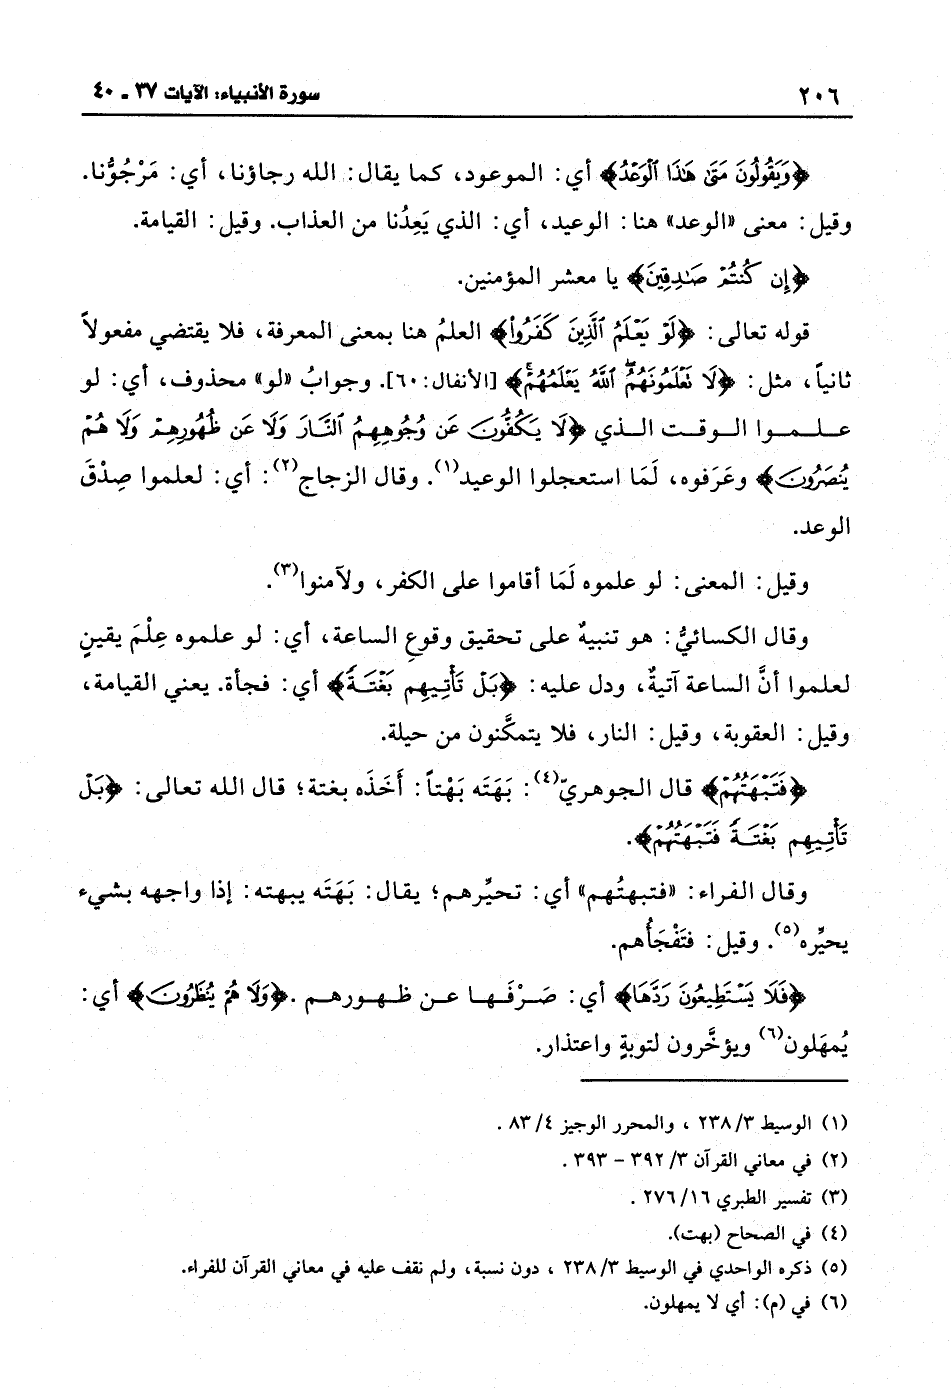 ٢٠٦ سورة الأنبياء: الآيات ٣٧ ـ ٤٠
﴿وَيَقُولُونَ مَتَىٰ هَٰذَا ٱلْوَعْدُ﴾ أي: الموعود، كما يقال: الله رجاؤنا، أي: مَرْجُوُّنا.
وقيل: معنى «الوعد» هنا: الوعيد، أي: الذي يَعِدُنا من العذاب. وقيل: القيامة.
﴿إِن كُنتُمْ صَٰدِقِينَ﴾ يا معشر المؤمنين.
قوله تعالى: ﴿لَوْ يَعْلَمُ ٱلَّذِينَ كَفَرُوا۟﴾ العلمُ هنا بمعنى المعرفة، فلا يقتضي مفعولاً
ثانياً، مثل: ﴿لَا تَعْلَمُونَهُمُ ٱللَّهُ يَعْلَمُهُمْ﴾ [الأنفال:٦٠]. وجوابُ «لو» محذوف، أي: لو
علـمـوا الـوقـت الـذي ﴿لَا يَكُفُّونَ عَن وُجُوهِهِمُ ٱلنَّارَ وَلَا عَن ظُهُورِهِمْ وَلَا هُمْ
يُنصَرُونَ﴾ وعَرَفوه، لَمَا استعجلوا الوعيد(١). وقال الزجاج(٢): أي: لعلموا صِدْقَ
الوعد.
وقيل: المعنى: لو علموه لَمَا أقاموا على الكفر، ولآمنوا(٣).
وقال الكسائيُّ: هو تنبيهٌ على تحقيق وقوعِ الساعة، أي: لو علموه عِلْمَ يقينٍ
لعلموا أنَّ الساعة آتيةٌ، ودل عليه: ﴿بَلْ تَأْتِيهِم بَغْتَةً﴾ أي: فجأة. يعني القيامة،
وقيل: العقوبة، وقيل: النار، فلا يتمكَّنون من حيلة.
﴿فَتَبْهَتُهُمْ﴾ قال الجوهريّ(٤): بَهَتَه بَهْتاً: أَخَذَه بغتة؛ قال الله تعالى: ﴿بَلْ
تَأْتِيهِم بَغْتَةً فَتَبْهَتُهُمْ﴾.
وقال الفراء: «فتبهتُهم» أي: تحيِّرهم؛ يقال: بَهَتَه يبهته: إذا واجهه بشيء
يحيِّره(٥). وقيل: فتَفْجَأُهم.
﴿فَلَا يَسْتَطِيعُونَ رَدَّهَا﴾ أي: صَـرْفَـهـا عـن ظـهـورهـم. ﴿وَلَا هُمْ يُنظَرُونَ﴾ أي:
يُمهَلون(٦) ويؤخَّرون لتوبةٍ واعتذار.
(١) الوسيط ٣/ ٢٣٨ ، والمحرر الوجيز ٤/ ٨٣ .
(٢) في معاني القرآن ٣/ ٣٩٢ – ٣٩٣ .
(٣) تفسير الطبري ١٦/ ٢٧٦ .
(٤) في الصحاح (بهت).
(٥) ذكره الواحدي في الوسيط ٣/ ٢٣٨ ، دون نسبة، ولم نقف عليه في معاني القرآن للفراء.
(٦) في (م): أي لا يمهلون.